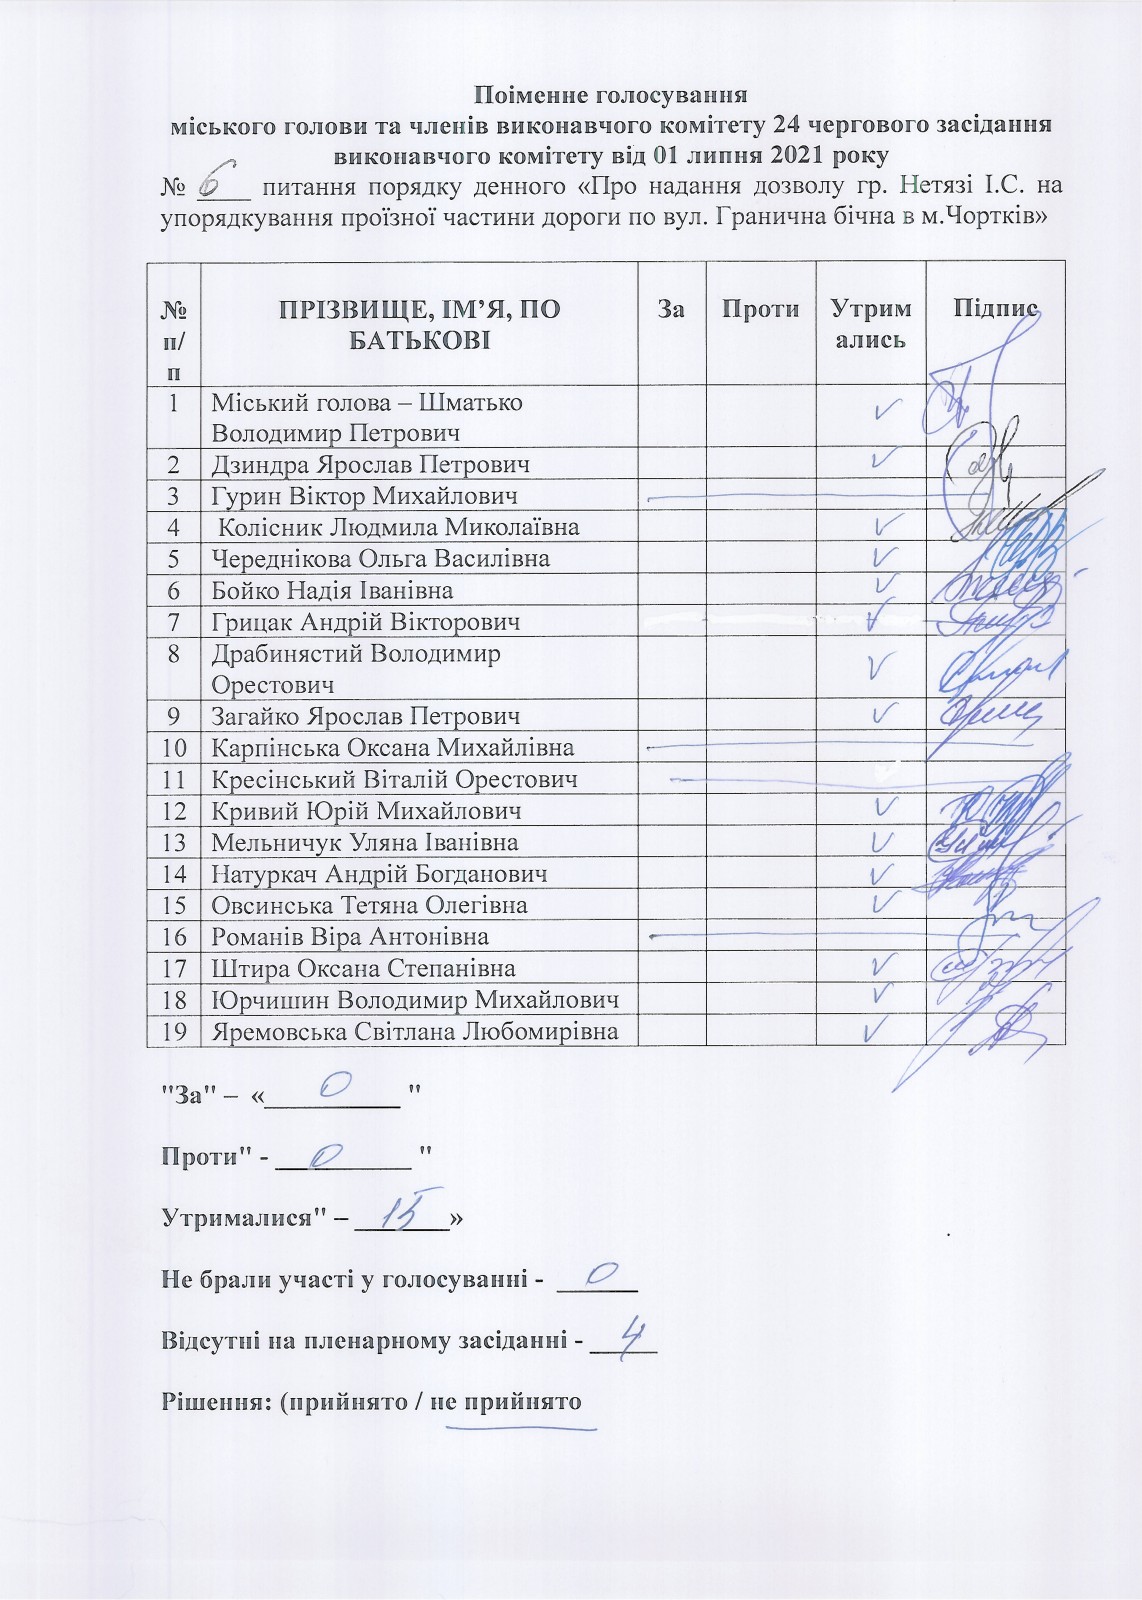 Поіменне голосування
міського голови та членів виконавчого комітету 24 чергового засідання
виконавчого комітету від 01 липня 2021 року
№ 6 питання порядку денного «Про надання дозволу гр. Нетязі І.С. на
упорядкування проїзної частини дороги по вул. Гранична бічна в м.Чортків»
№ п/п ПРІЗВИЩЕ, ІМ’Я, ПО БАТЬКОВІ За Проти Утримались Підпис
1 Міський голова – Шматько
Володимир Петрович ✓
2 Дзиндра Ярослав Петрович ✓
3 Гурин Віктор Михайлович
4 Колісник Людмила Миколаївна ✓
5 Череднікова Ольга Василівна ✓
6 Бойко Надія Іванівна ✓
7 Грицак Андрій Вікторович ✓
8 Драбинястий Володимир
Орестович ✓
9 Загайко Ярослав Петрович ✓
10 Карпінська Оксана Михайлівна
11 Кресінський Віталій Орестович
12 Кривий Юрій Михайлович ✓
13 Мельничук Уляна Іванівна ✓
14 Натуркач Андрій Богданович ✓
15 Овсинська Тетяна Олегівна ✓
16 Романів Віра Антонівна
17 Штира Оксана Степанівна ✓
18 Юрчишин Володимир Михайлович ✓
19 Яремовська Світлана Любомирівна ✓
"За" – « 0 "
Проти" - 0 "
Утрималися" – 15 »
Не брали участі у голосуванні - 0
Відсутні на пленарному засіданні - 4
Рішення: (прийнято / не прийнято